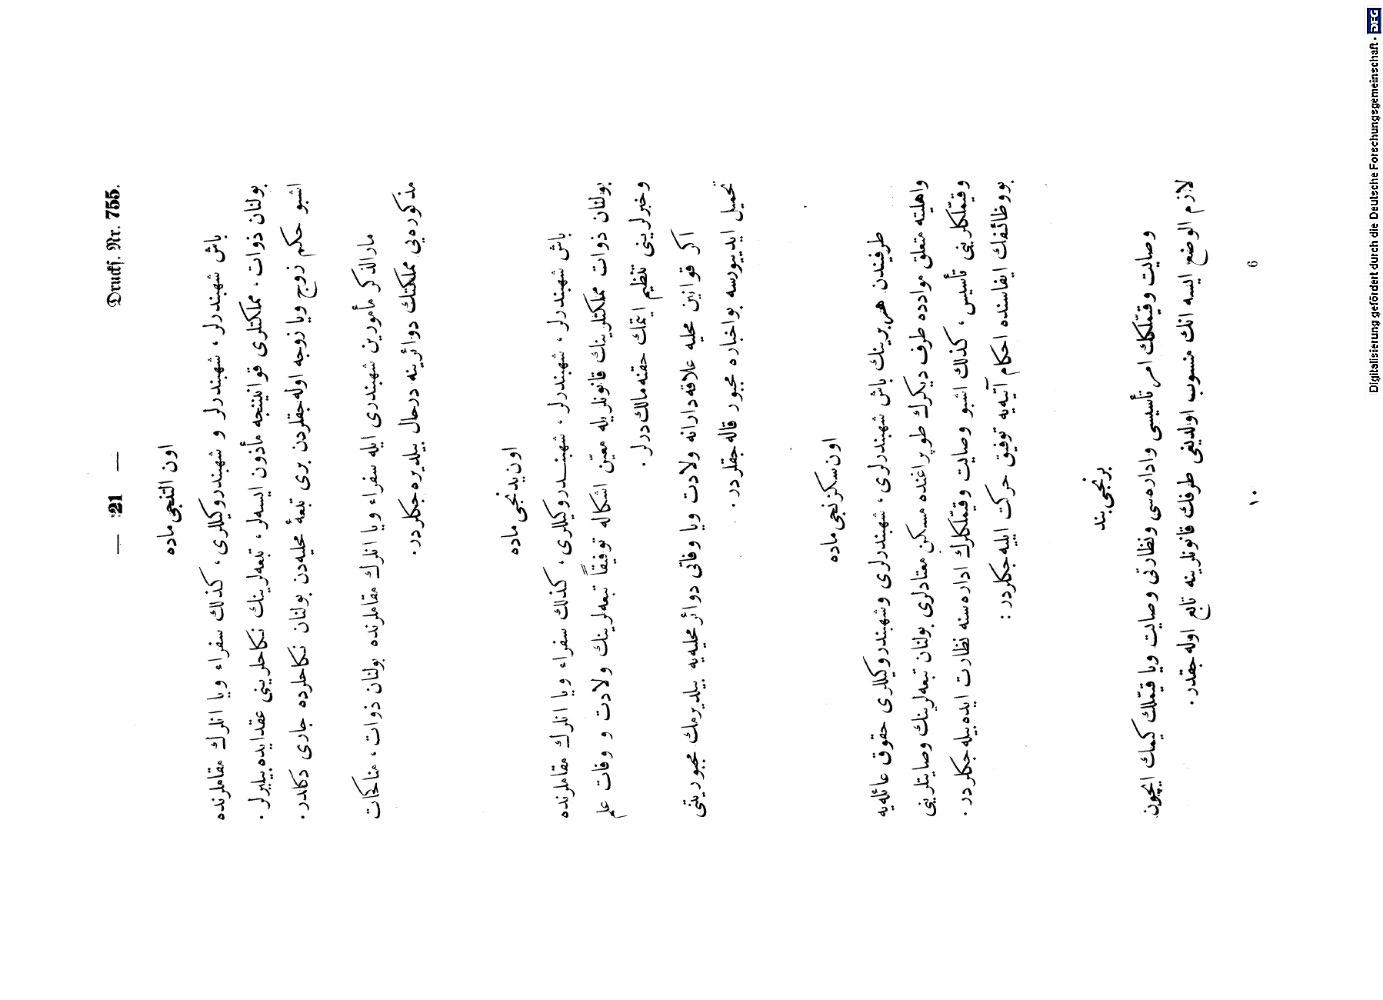 Drucks. Nr. 755.
— 21 —
اون التنجی ماده
باش شهبندرلر ، شهبندرلر و شهبندر وکیللری ، کذلك سفراء ویا انلرك مقاملرنده
بولنان ذوات ، مملکتلری قوانیننجه مأذون ایسه‌لر ، تبعه‌لرینك نکاحلرینی عقد ایده بیلیرلر .
اشبو حکم زوج ویا زوجه اوله جقلردن بری تبعهٔ محلیه‌دن بولنان نکاحلرده جاری دکلدر .
مارالذکر مأمورین شهبندری ایله سفراء ویا انلرك مقاملرنده بولنان ذوات ، مناکحات
مذکوره‌یی مملکتك دوائرینه درحال بیلدیره جکلردر .
اون یدنجی ماده
باش شهبندرلر ، شهبندرلر ، شهبندر وکیللری ، کذلك سفراء ویا انلرك مقاملرنده
بولنان ذوات مملکتلرینك قانونلریله معیّن اشکاله توفیقاً تبعه‌لرینك ولادت و وفات علم
وخبرلرینی تنظیم ایتمك حقنه مالك درلر .
اکر قوانین محلیه علاقه‌دارانه ولادت ویا وفاتی دوائر محلیه‌یه بیلدیرمك مجبوریتنی
تحمیل ایدییورسه بو اخباره مجبور قاله جقلردر .
اون سکزنجی ماده
طرفیندن هر برینك باش شهبندرلری ، شهبندرلری وشهبندر وکیللری حقوق عائله‌یه
واهلیته متعلق موادده طرف دیکرك طوپراغنده مسکن معتادلری بولنان تبعه‌لرینك وصایتلرینی
وقیّملکلرینی تأسیس ، کذلك اشبو وصایت وقیّملکلرك اداره‌سنه نظارت ایده بیله جکلردر .
بو وظائفك ایفاسنده احکام آتیه‌یه توفیق حرکت ایلیه جکلردر :
برنجی بند
وصایت وقیّملکك امر تأسیسی واداره‌سی ونظارتی وصایت ویا قیّملك کیمك ایچون
لازم الوضع ایسه انك منسوب اولدیغی طرفك قانونلرینه تابع اوله جقدر .
١٠
6
Digitalisierung gefördert durch die Deutsche Forschungsgemeinschaft - DFG